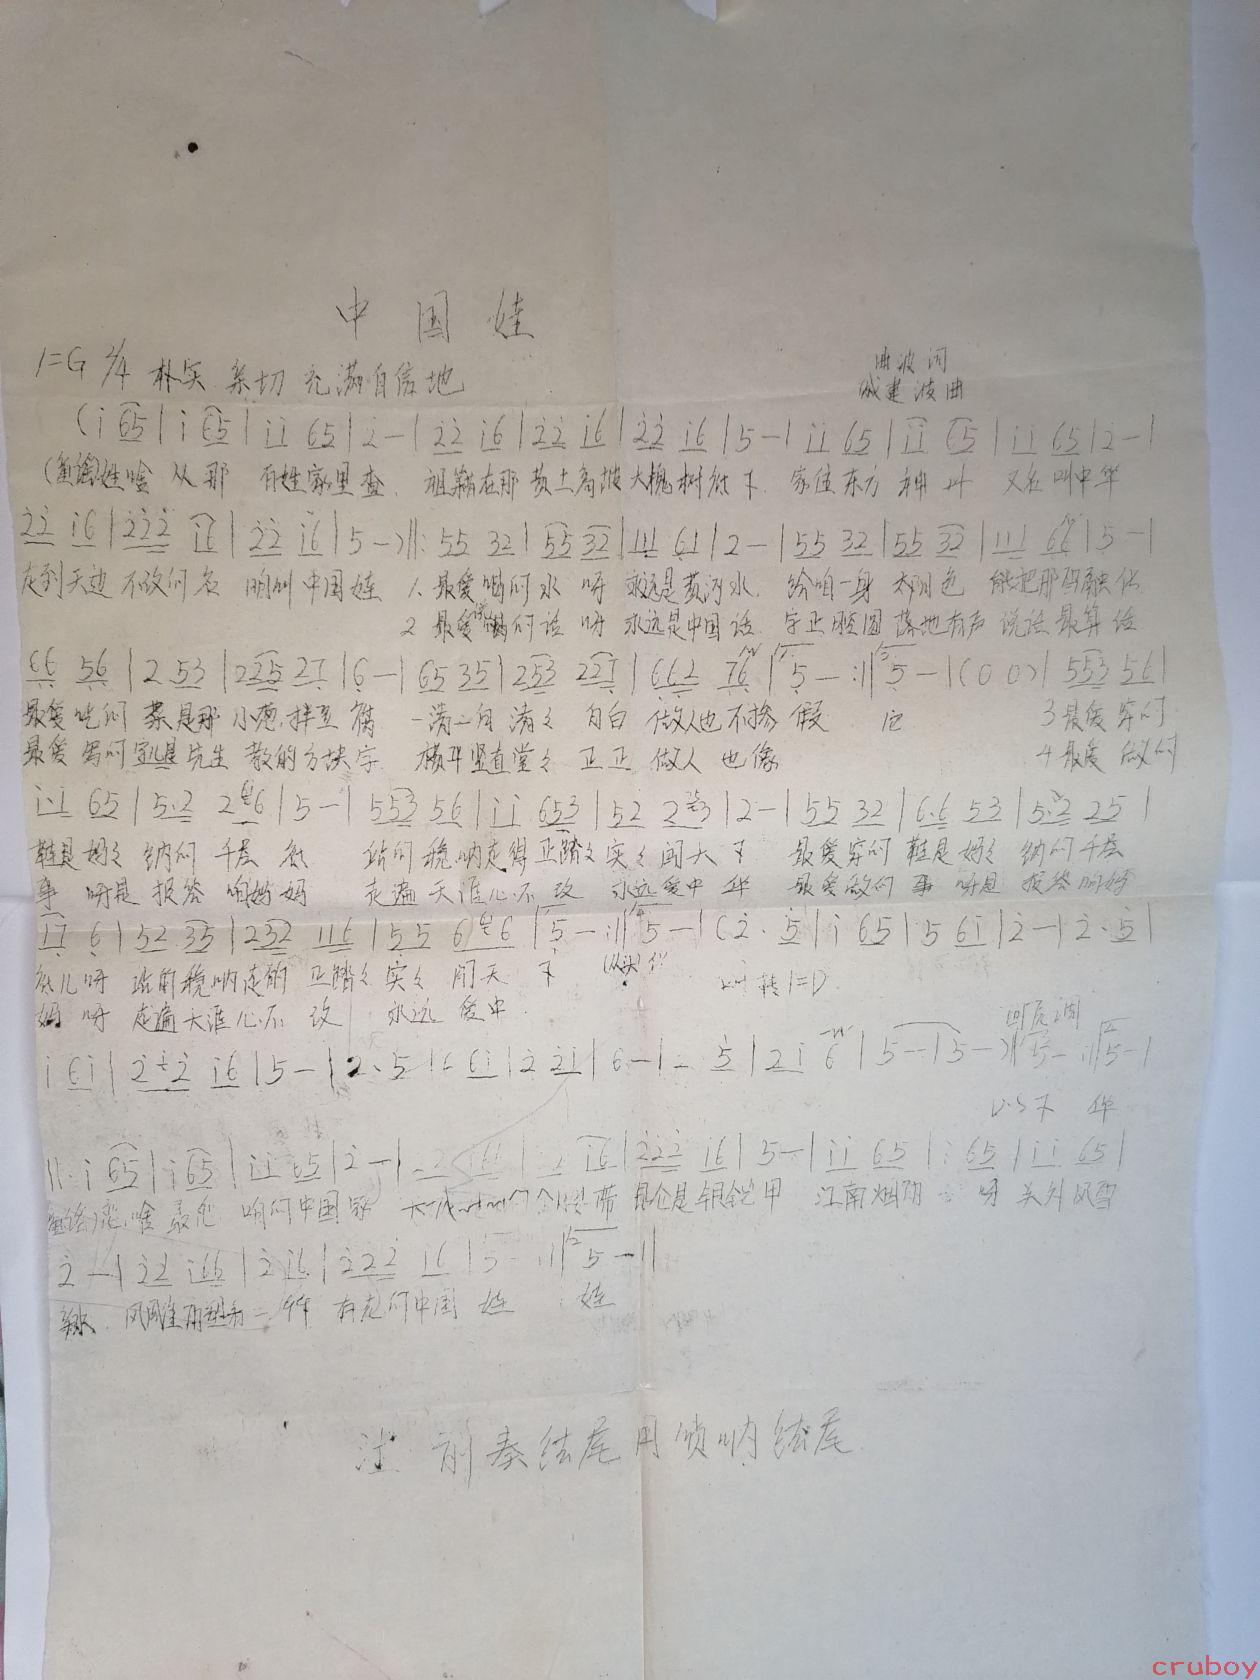 中国娃
1=G 2/4 朴实 亲切 充满自信地
曲波词
戚建波曲
(i 65 | i 65 | ii 65 | 2 — | 22 i6 | 22 i6 | 22 i6 | 5 — | ii 65 | ii 65 | ii 65 | 2 — |
(童谣)姓啥 从那 百姓家里查 祖籍在那黄土高坡大槐树底下 家住东方神州 又名叫中华
22 i6 | 222 i6 | 22 i6 | 5 —) ‖: 55 32 | 55 32 | 111 61 | 2 — | 55 32 | 55 32 | 111 66 | 5 — |
走到天边不改的名 咱叫中国娃 1. 最爱喝的水呀永远是黄河水 给咱一身太阳色 能把那雪融化
2 最爱说的话呀永远是中国话 字正腔圆落地有声说话最算话
66 56 | 2 53 | 2325 27 | 6 — | 65 35 | 253 227 | 662 76 | 5 — :‖ 5 — | (0 0) | 553 56 |
最爱吃的菜是那小葱拌豆腐 一清二白清々白白做人也不掺假 话 3 最爱穿的
最爱写的字儿是先生教的方块字 横平竖直堂々正正做人也像 4 最爱做的
i·i 65 | 5·2 2 6 | 5 — | 553 56 | ii 653 | 52 2 3 | 2 — | 55 32 | 6·6 53 | 5·2 25 |
鞋是妈々纳的千层底 站的稳呐走得正踏々实々闯天下 最爱穿的鞋是妈々纳的千层
事呀是报答咱妈妈 走遍天涯心不改永远爱中华 最爱做的事呀是报答咱妈
17 6 | 52 35 | 232 116 | 55 6 6 | 5 — :‖ 5 — | (2· 5 | i 65 | 5 6i | 2 — | 2· 5 |
底儿呀 站的稳呐走的正踏々实々闯天下 (从头)华 转1=D
妈呀 走遍天涯心不改 永远爱中
i 6i | 2 2 i6 | 5 — | 2· 5 | 6 6i | 2 2i | 6 — | 2 5 | 2 i 6 | 5 — | 5 —) ‖ 5 — :‖ 5 — |
回原调
D.S下 华
‖: i 65 | i 65 | ii 65 | 2 — | i6 | i6 | 222 i6 | 5 — | ii 65 | i 65 | ii 65 |
童谣) 啥 咱们中国 银铠甲 江南烟雨 呀 关外风雪
2 — | 22 i66 | 2 i6 | 222 i6 | 5 — :‖ 5 — ‖
中国娃 娃
注 前奏结尾用唢呐结尾
cruboy